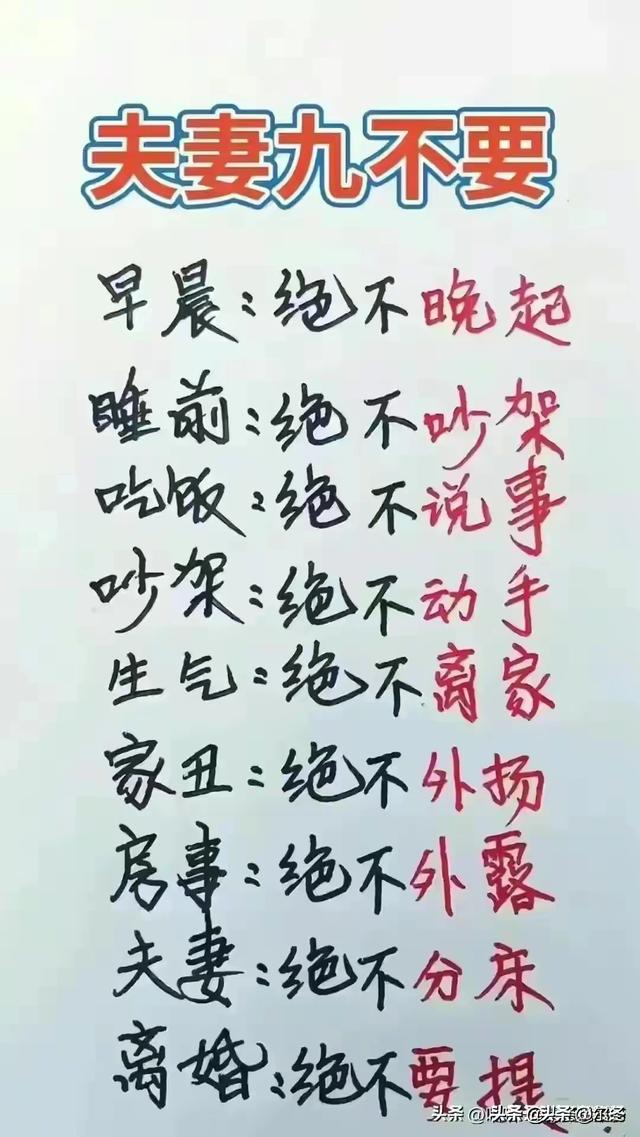 夫妻九不要
早晨:绝不晚起
睡前:绝不吵架
吃饭:绝不说事
吵架:绝不动手
生气:绝不离家
家丑:绝不外扬
房事:绝不外露
夫妻:绝不分床
离婚:绝不要提
头条 @头条 @头条